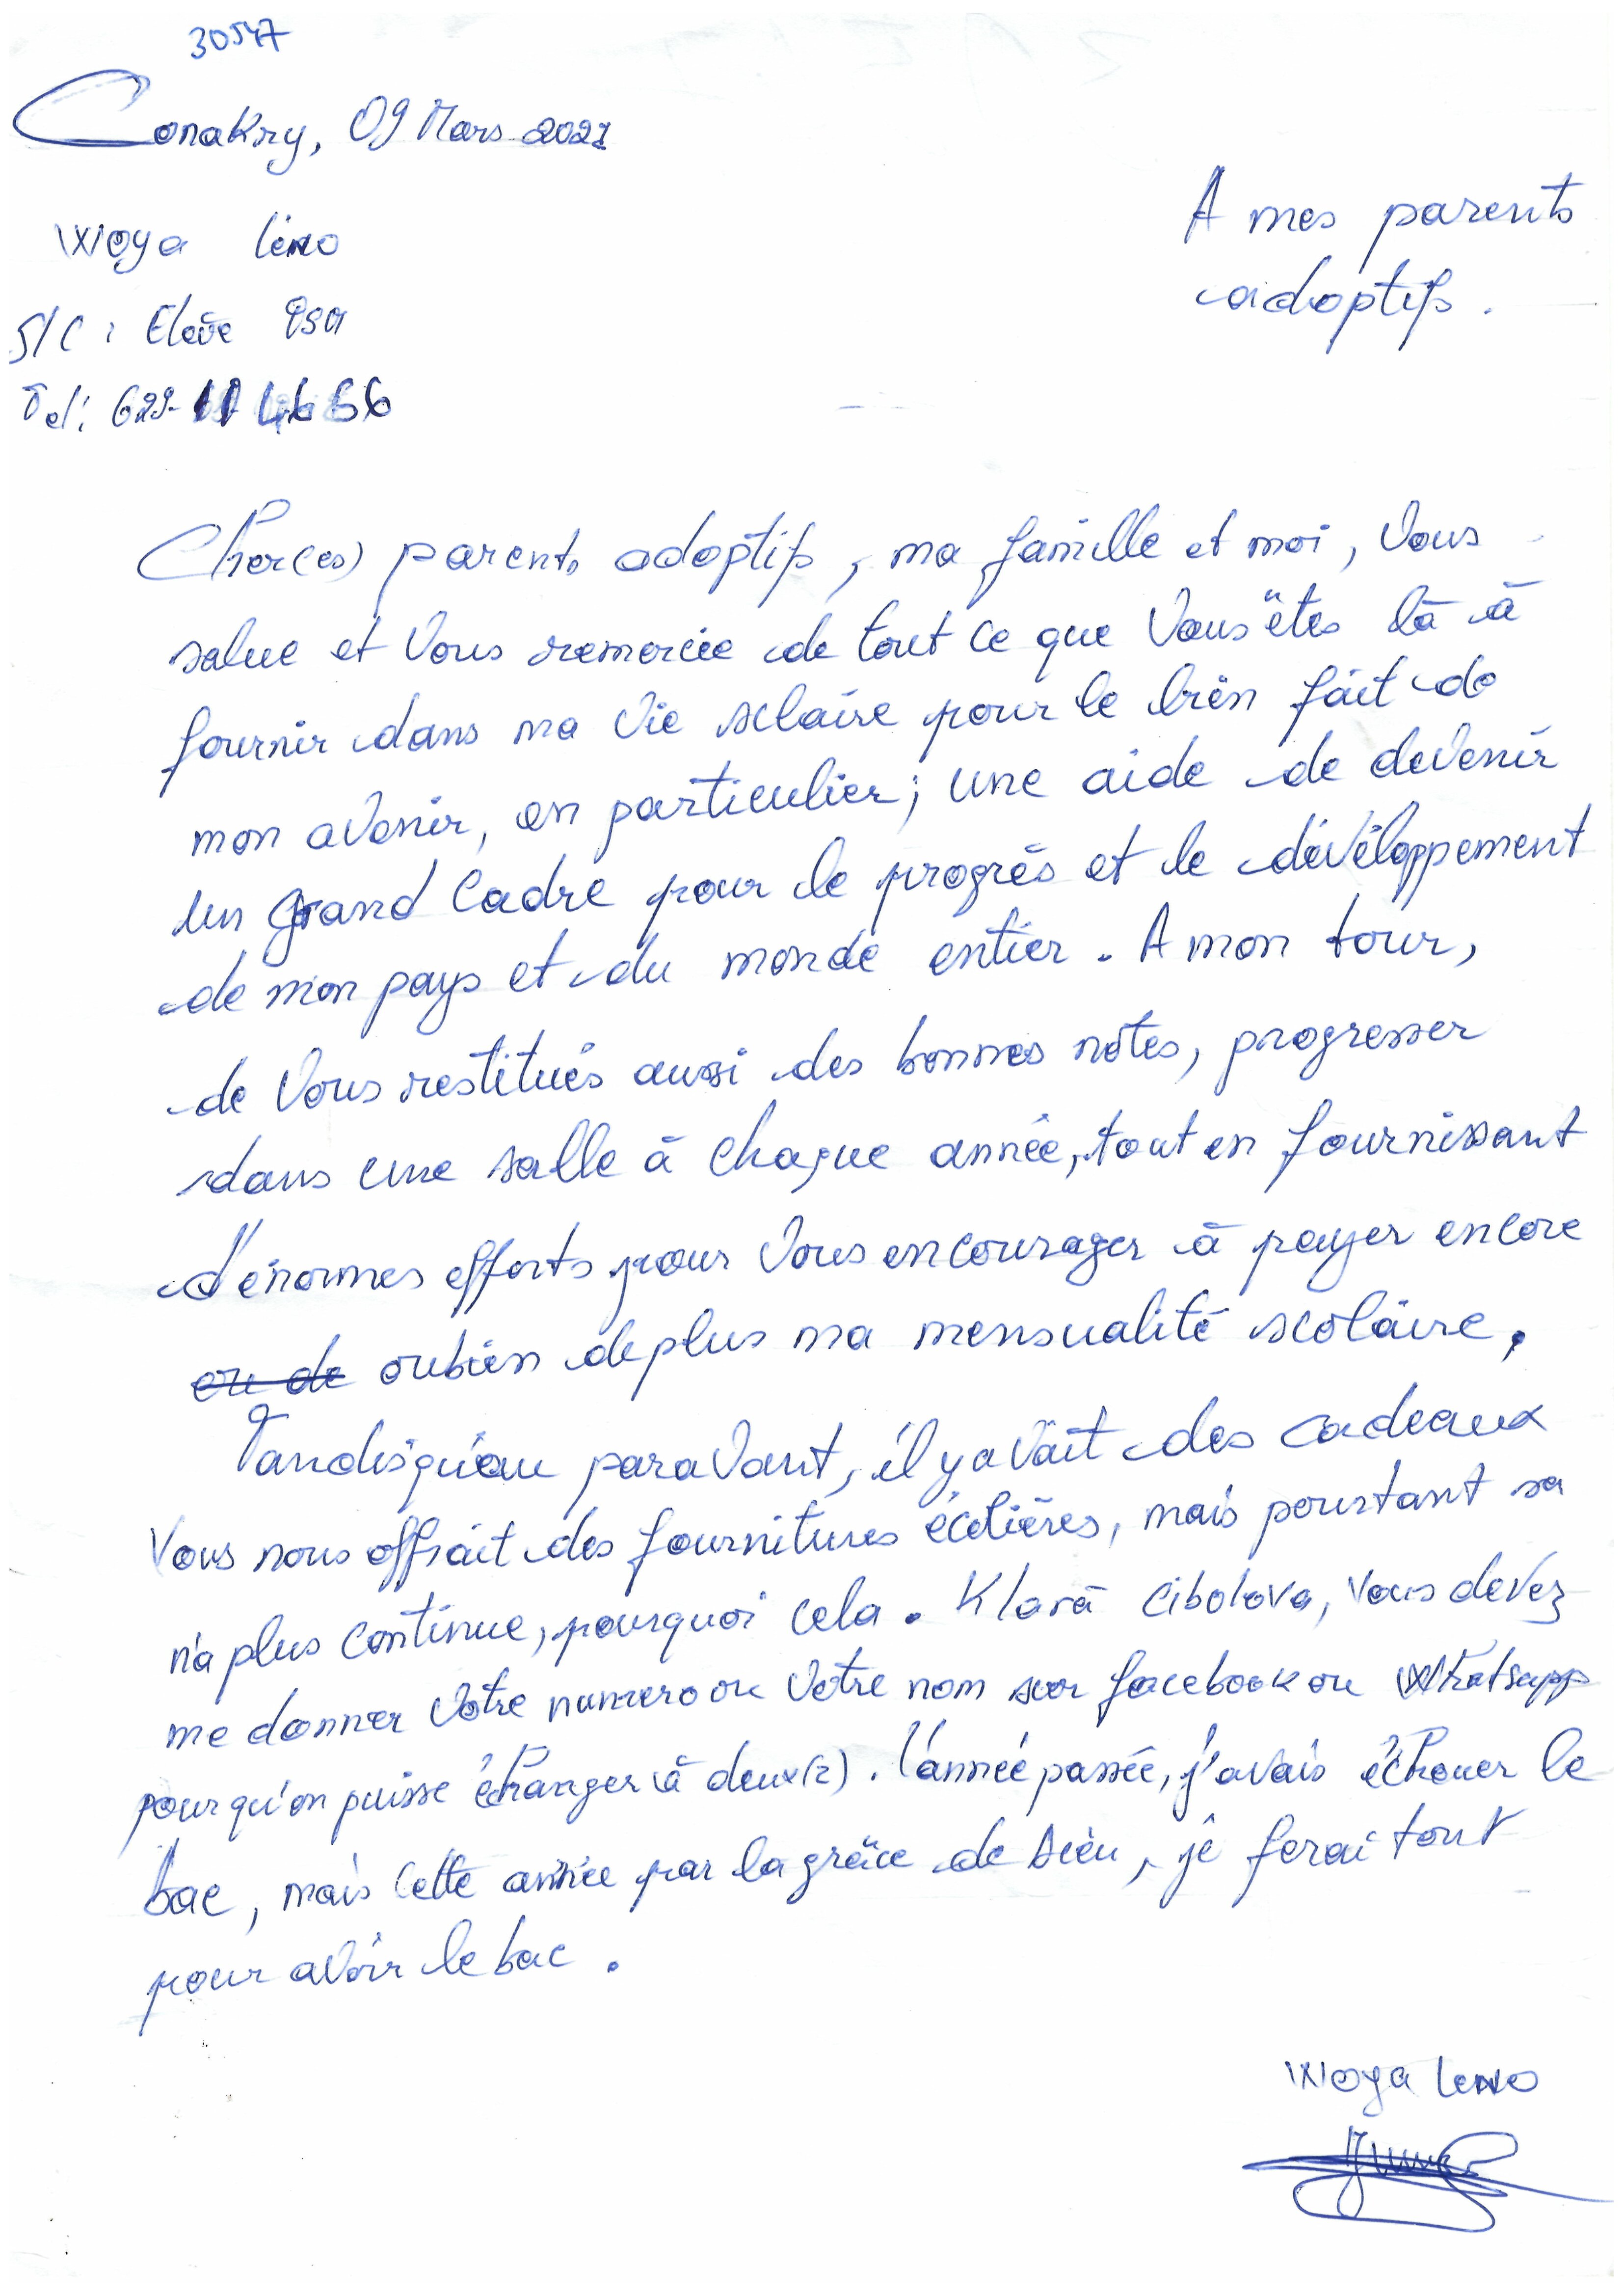 30547
Conakry, 09 Mars 2021
A mes parents
adoptifs.
Woya Leno
S/C : Elève PSA
Tel: 629-11 46 66
Cher(es) parents adoptifs, ma famille et moi, Vous
salue et Vous remercie de tout ce que Vous êtes là à
fournir dans ma vie sclaire pour le bien fait de
mon avenir, en particulier; une aide de devenir
un grand Cadre pour le progrès et le dévéloppement
de mon pays et du monde entier. A mon tour,
de Vous restitués aussi des bonnes notes, progresser
dans une salle à chaque année, tout en fournissant
d'énormes efforts pour Vous encourager à payer encore
ou de oubien deplus ma mensualité scolaire.
Tandisqu'au paravant, il y avait des cadeaux
Vous nous offrait des fournitures écolières, mais pourtant sa
n'a plus continue, pourquoi cela. Klarà Cibolova, Vous devez
me donner Votre numero ou Votre nom sur facebook ou Whatsapp
pour qu'on puisse échanger à deux(2). l'année passée, j'avais échouer le
bac, mais cette année par la grâce de Dieu, je ferai tout
pour avoir le bac.
Woya Leno